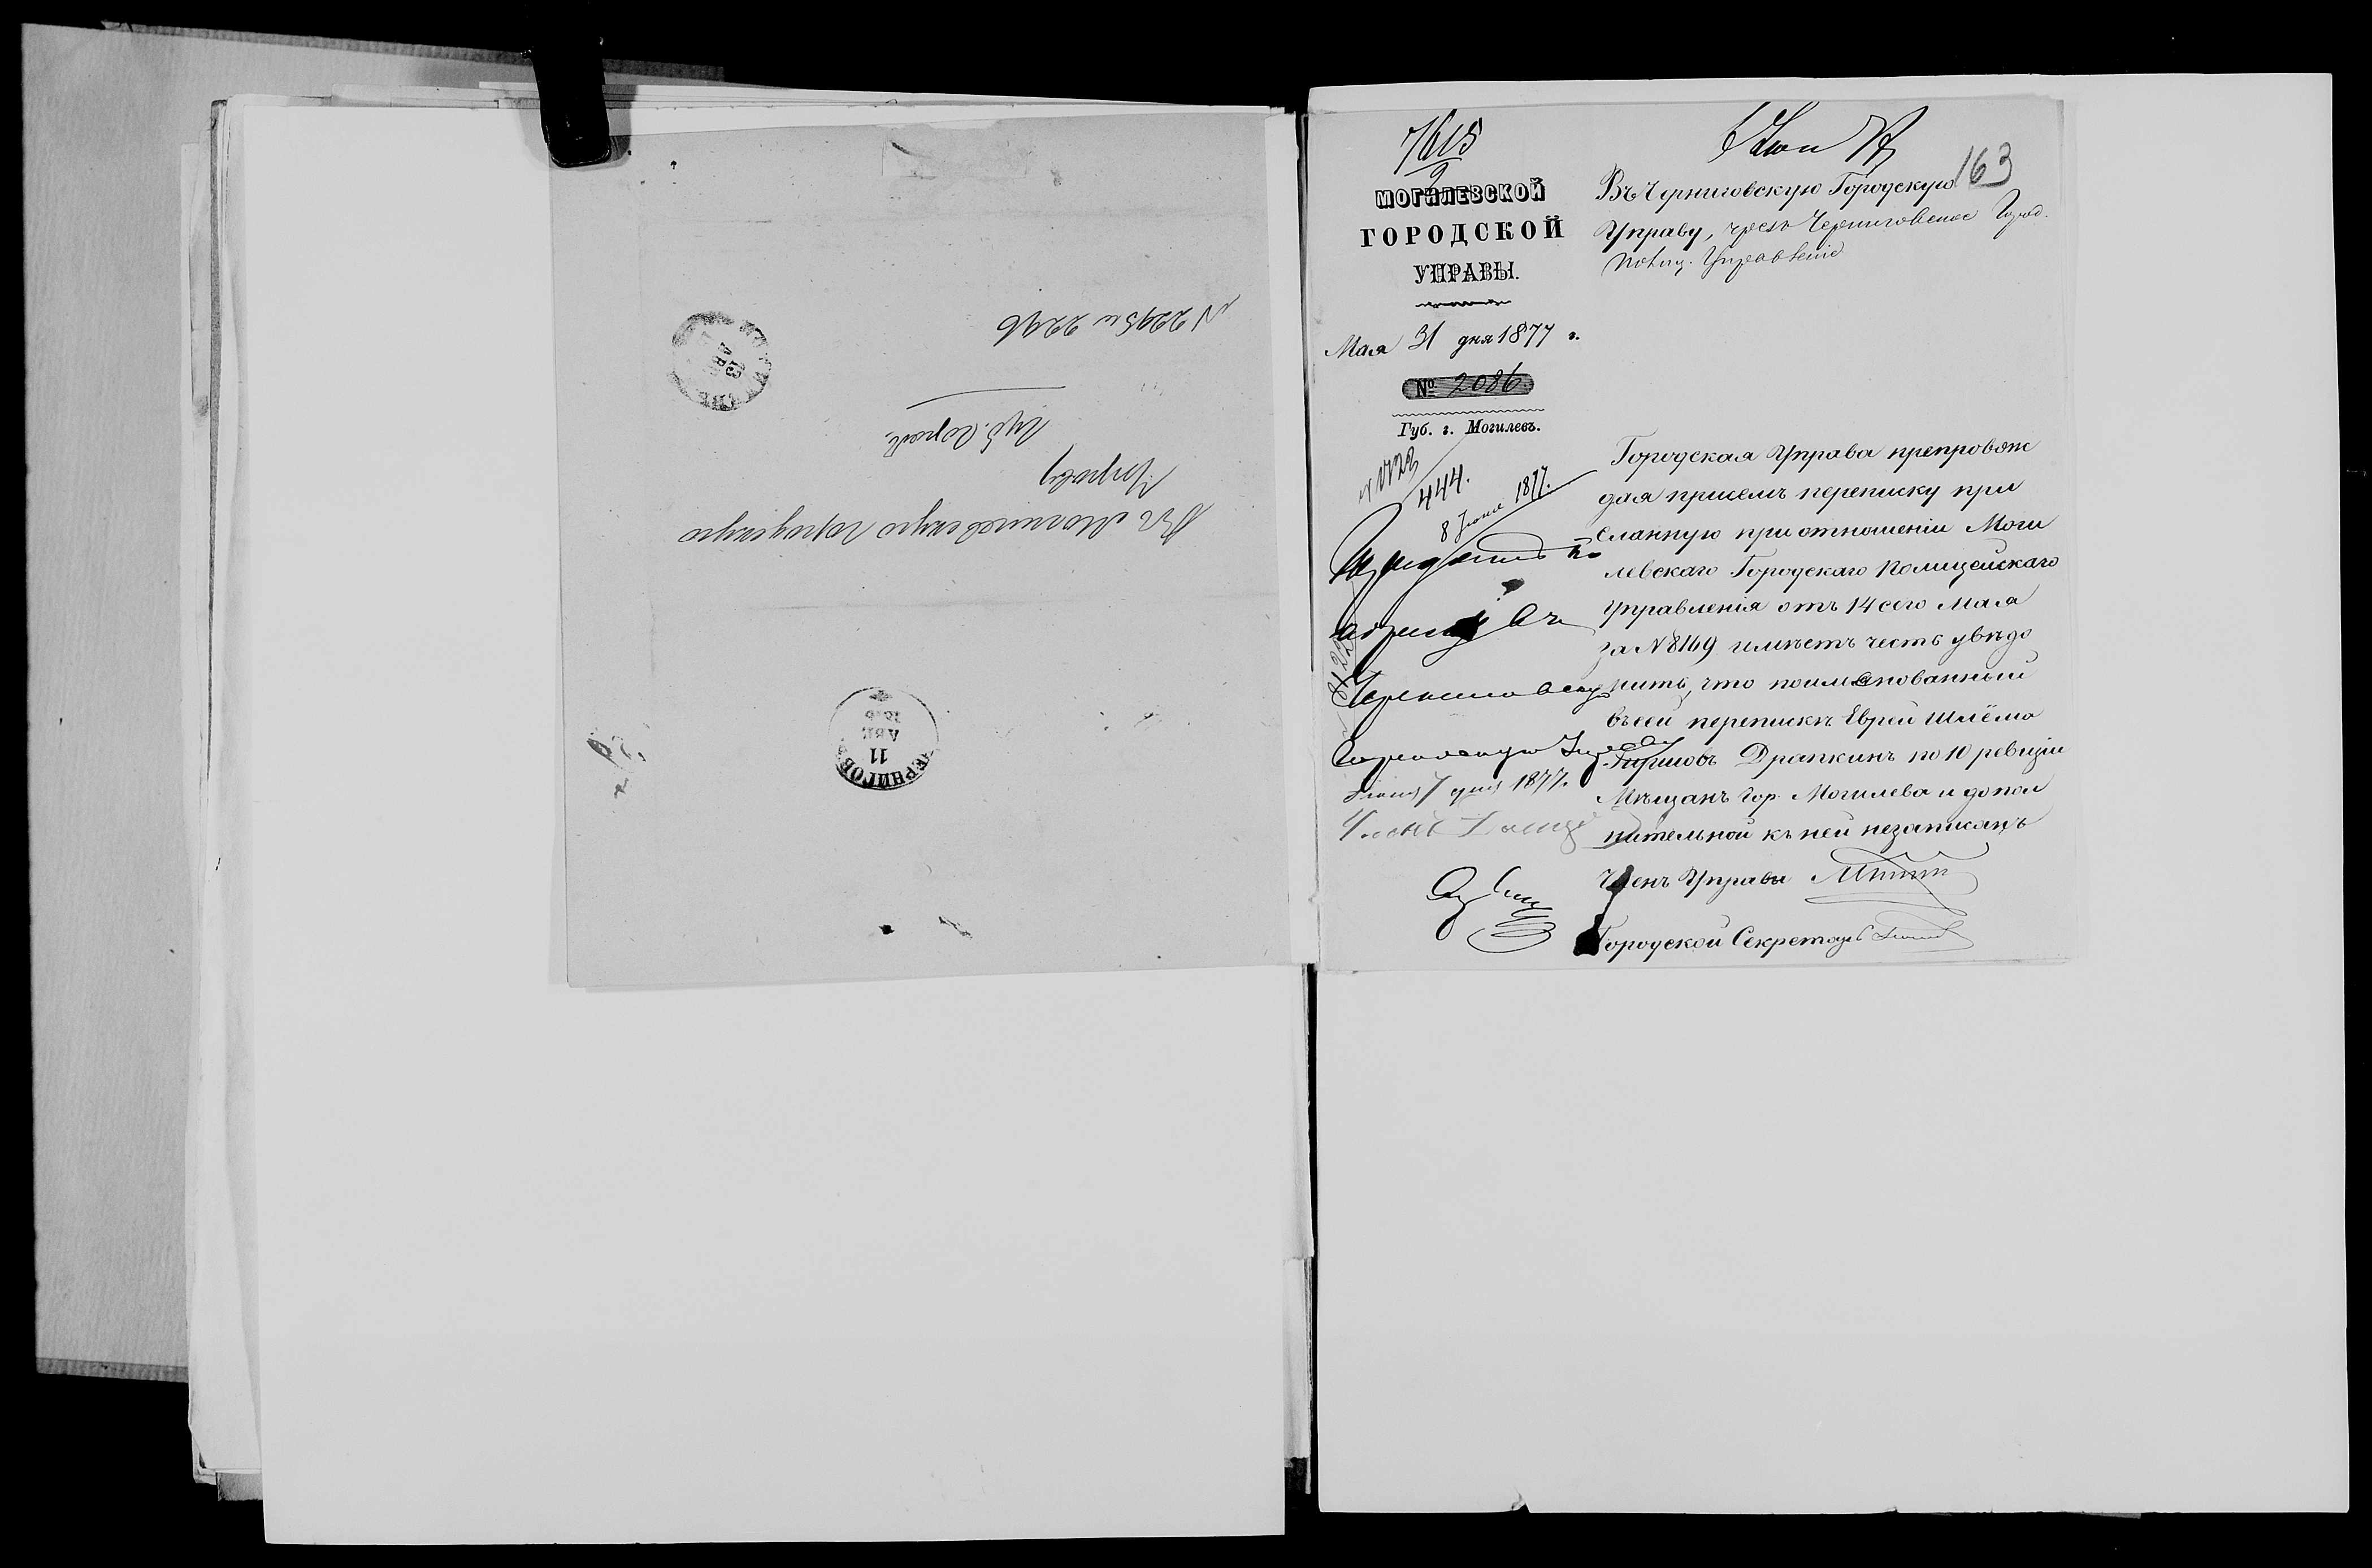 N 2295 и 2296
Въ Могилевскую городскую
Управу
Губ. город.
ЧЕРНИГОВ
11
АВГ
13
АВГ
7615
163
МОГИЛЕВСКОЙ
ГОРОДСКОЙ
УПРАВЫ.
Мая 31 дня 1877 г.
№ 2086.
Губ. г. Могилевъ.
444.
8 Іюня 1877.
Черниговскую
Городскую Управу
Іюня 7 дня 1877.
Въ Черниговскую Городскую
Управу, чрезъ Черниговское Город.
Полиц. Управленіе
Городская Управа препровож
дая присемъ переписку при
сланную при отношеніи Моги
левскаго Городскаго Полицейскаго
Управленія отъ 14 сего Мая
за N 8169 имѣетъ честь увѣдо
мить, что поименованный
въ сей перепискѣ Еврей Шлёма
Гиршовъ Драпкинъ по 10 ревизіи
Мѣщанъ Гор. Могилева и допол
нительной къ ней незаписанъ
Членъ Управы
Городской Секретарь